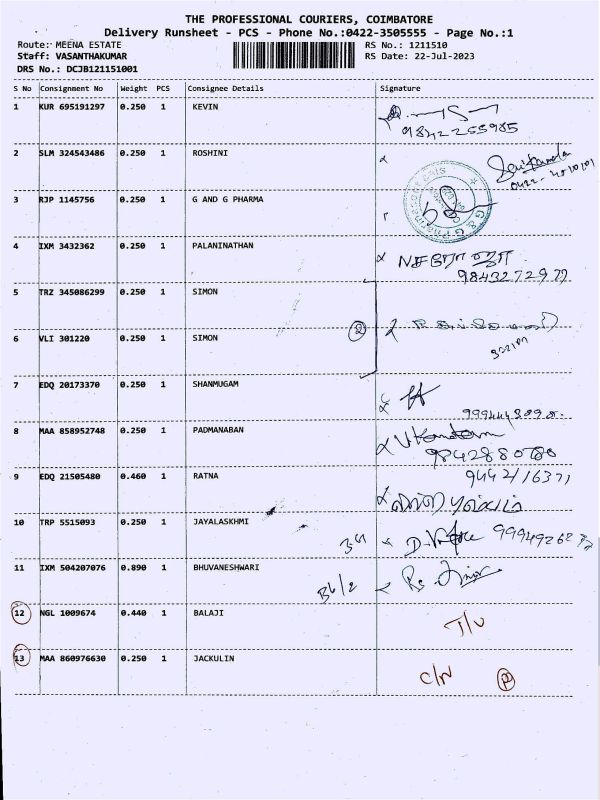 THE PROFESSIONAL COURIERS, COIMBATORE
Delivery Runsheet - PCS - Phone No.:0422-3505555 - Page No.:1
Route: MEENA ESTATE RS No.: 1211510
Staff: VASANTHAKUMAR RS Date: 22-Jul-2023
DRS No.: DCJB121151001
S No Consignment No Weight PCS Consignee Details Signature
1 KUR 695191297 0.250 1 KEVIN
9842255985
2 SLM 324543486 0.250 1 ROSHINI
3 RJP 1145756 0.250 1 G AND G PHARMA
4 IXM 3432362 0.250 1 PALANINATHAN
5 TRZ 345086299 0.250 1 SIMON
6 VLI 301220 0.250 1 SIMON
2
7 EDQ 20173370 0.250 1 SHANMUGAM
8 MAA 858952748 0.250 1 PADMANABAN
9842880780
9 EDQ 21505480 0.460 1 RATNA
10 TRP 5515093 0.250 1 JAYALASKHMI
11 IXM 504207076 0.890 1 BHUVANESHWARI
12 NGL 1009674 0.440 1 BALAJI
13 MAA 860976630 0.250 1 JACKULIN
C/N P